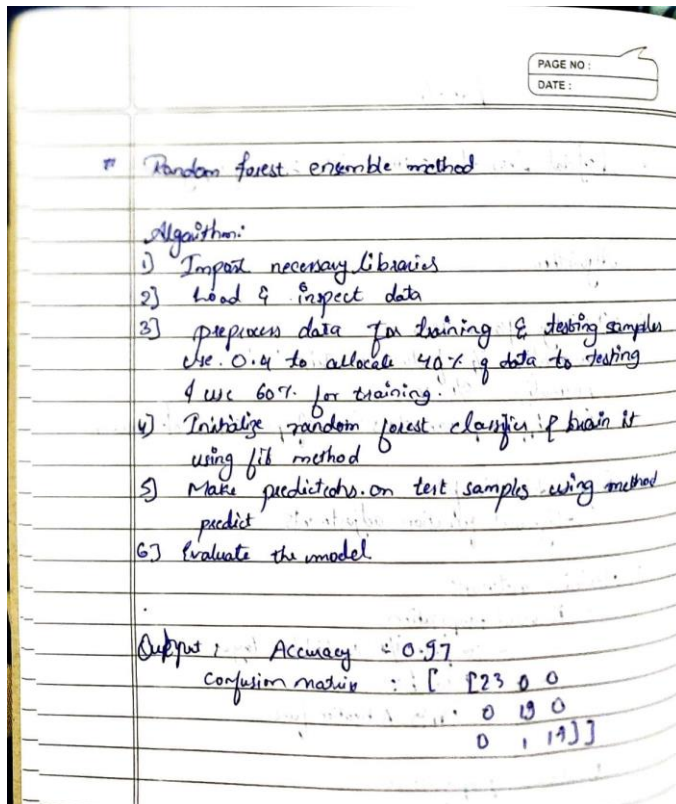 PAGE NO :
DATE :
Random forest ensemble method
Algorithm:
1) Import necessary libraries
2] Load & inspect data
3] preprocess data for training & testing samples
use 0.4 to allocate 40% of data to testing
& use 60% for training.
4) Initialize random forest classifier & train it
using fit method
5] Make predictions on test samples using method
predict
6] Evaluate the model.
Output : Accuracy : 0.97
Confusion matrix : [ [23 0 0
0 19 0
0 1 17]]